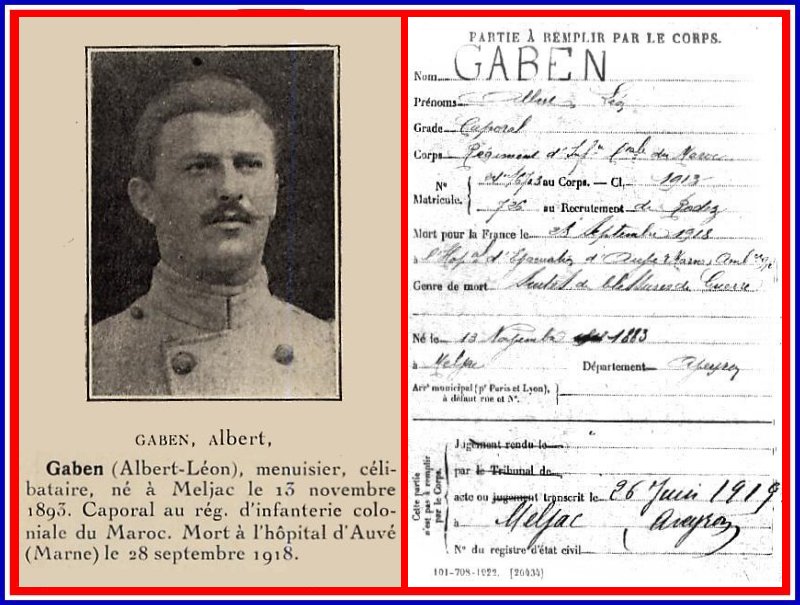 GABEN, Albert,
Gaben (Albert-Léon), menuisier, céli-
bataire, né à Meljac le 13 novembre
1893. Caporal au rég. d'infanterie colo-
niale du Maroc. Mort à l'hôpital d'Auvé
(Marne) le 28 septembre 1918.
PARTIE À REMPLIR PAR LE CORPS.
Nom GABEN
Prénoms Albert Léon
Grade Caporal
Corps Régiment d'Inf. Cole du Maroc
N° Matricule. au Corps. — Cl. 1913
726 au Recrutement de Rodez
Mort pour la France le 28 Septembre 1918
à l'Hop. d'Evacuation d'Auve Marne, Amb.
Genre de mort Suites de blessures de Guerre
Né le 13 Novembre 1893
à Meljac Département Aveyron
Arrt municipal (pr Paris et Lyon),
à défaut rue et N°.
Cette partie
n'est pas à remplir
par le Corps.
Jugement rendu le
par le Tribunal de
acte ou jugement transcrit le 26 Juin 1919
à Meljac Aveyron
N° du registre d'état civil
101-708-1922. [26434]